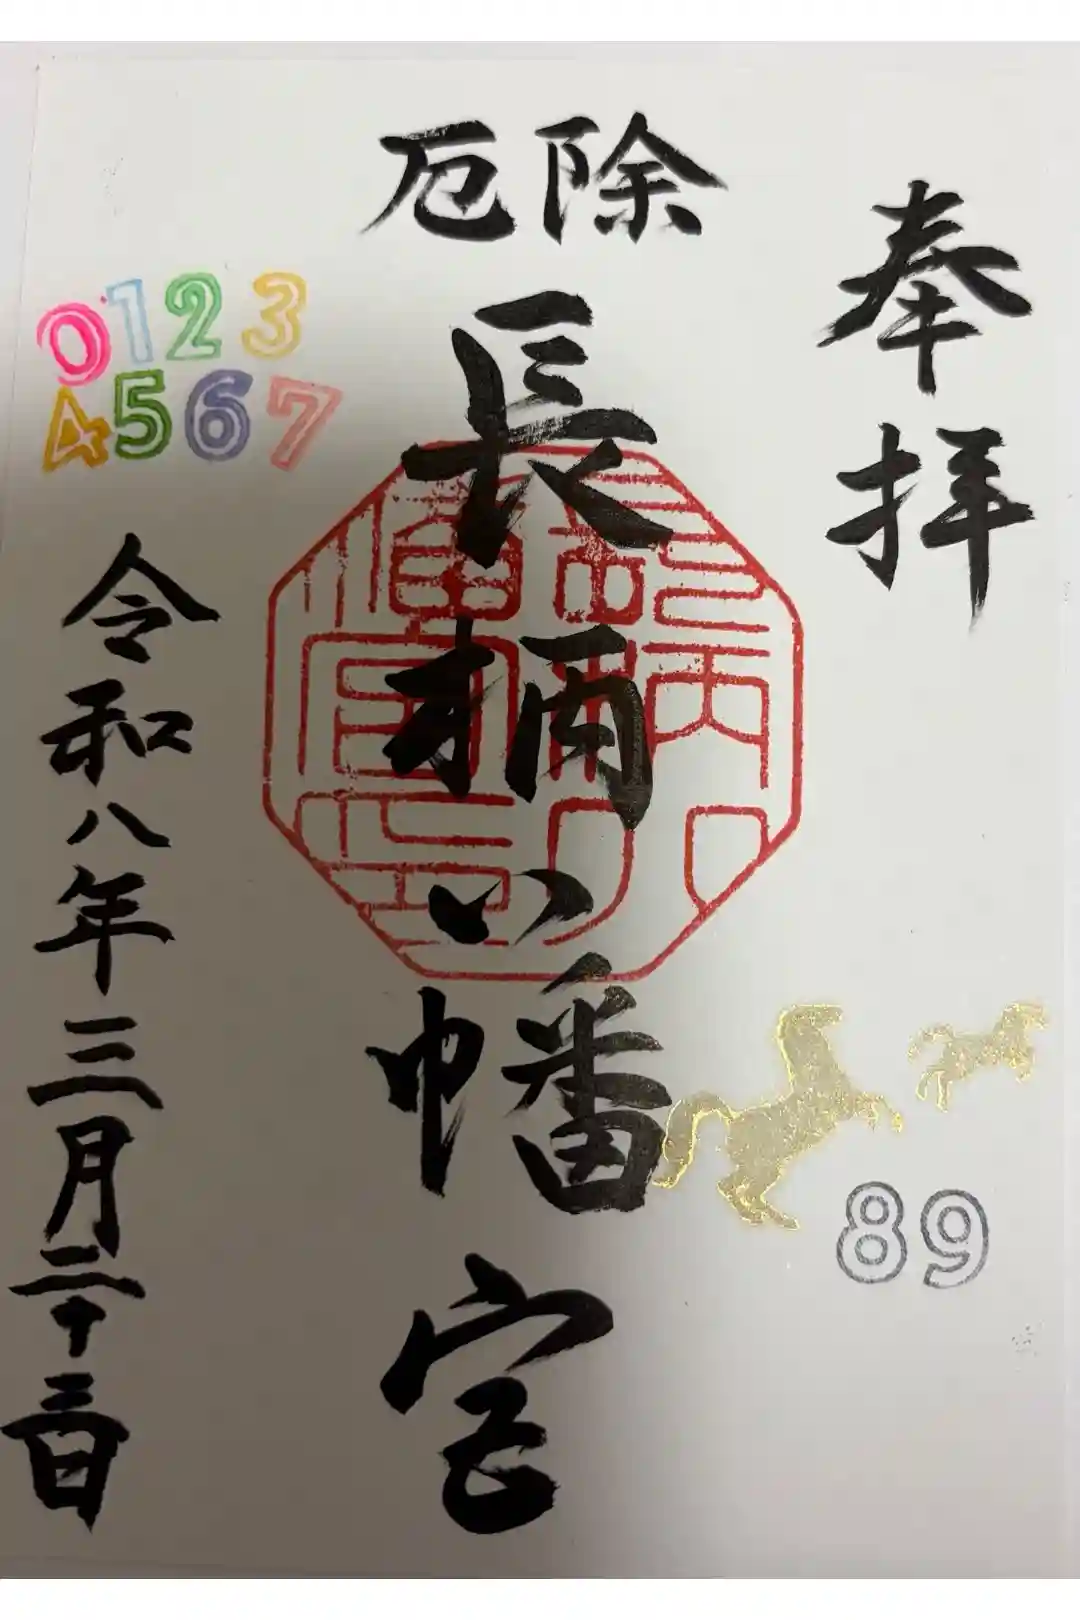 奉拝
厄除
長柄八幡宮
長柄八幡宮印
0123
4567
令和八年三月二十三日
89